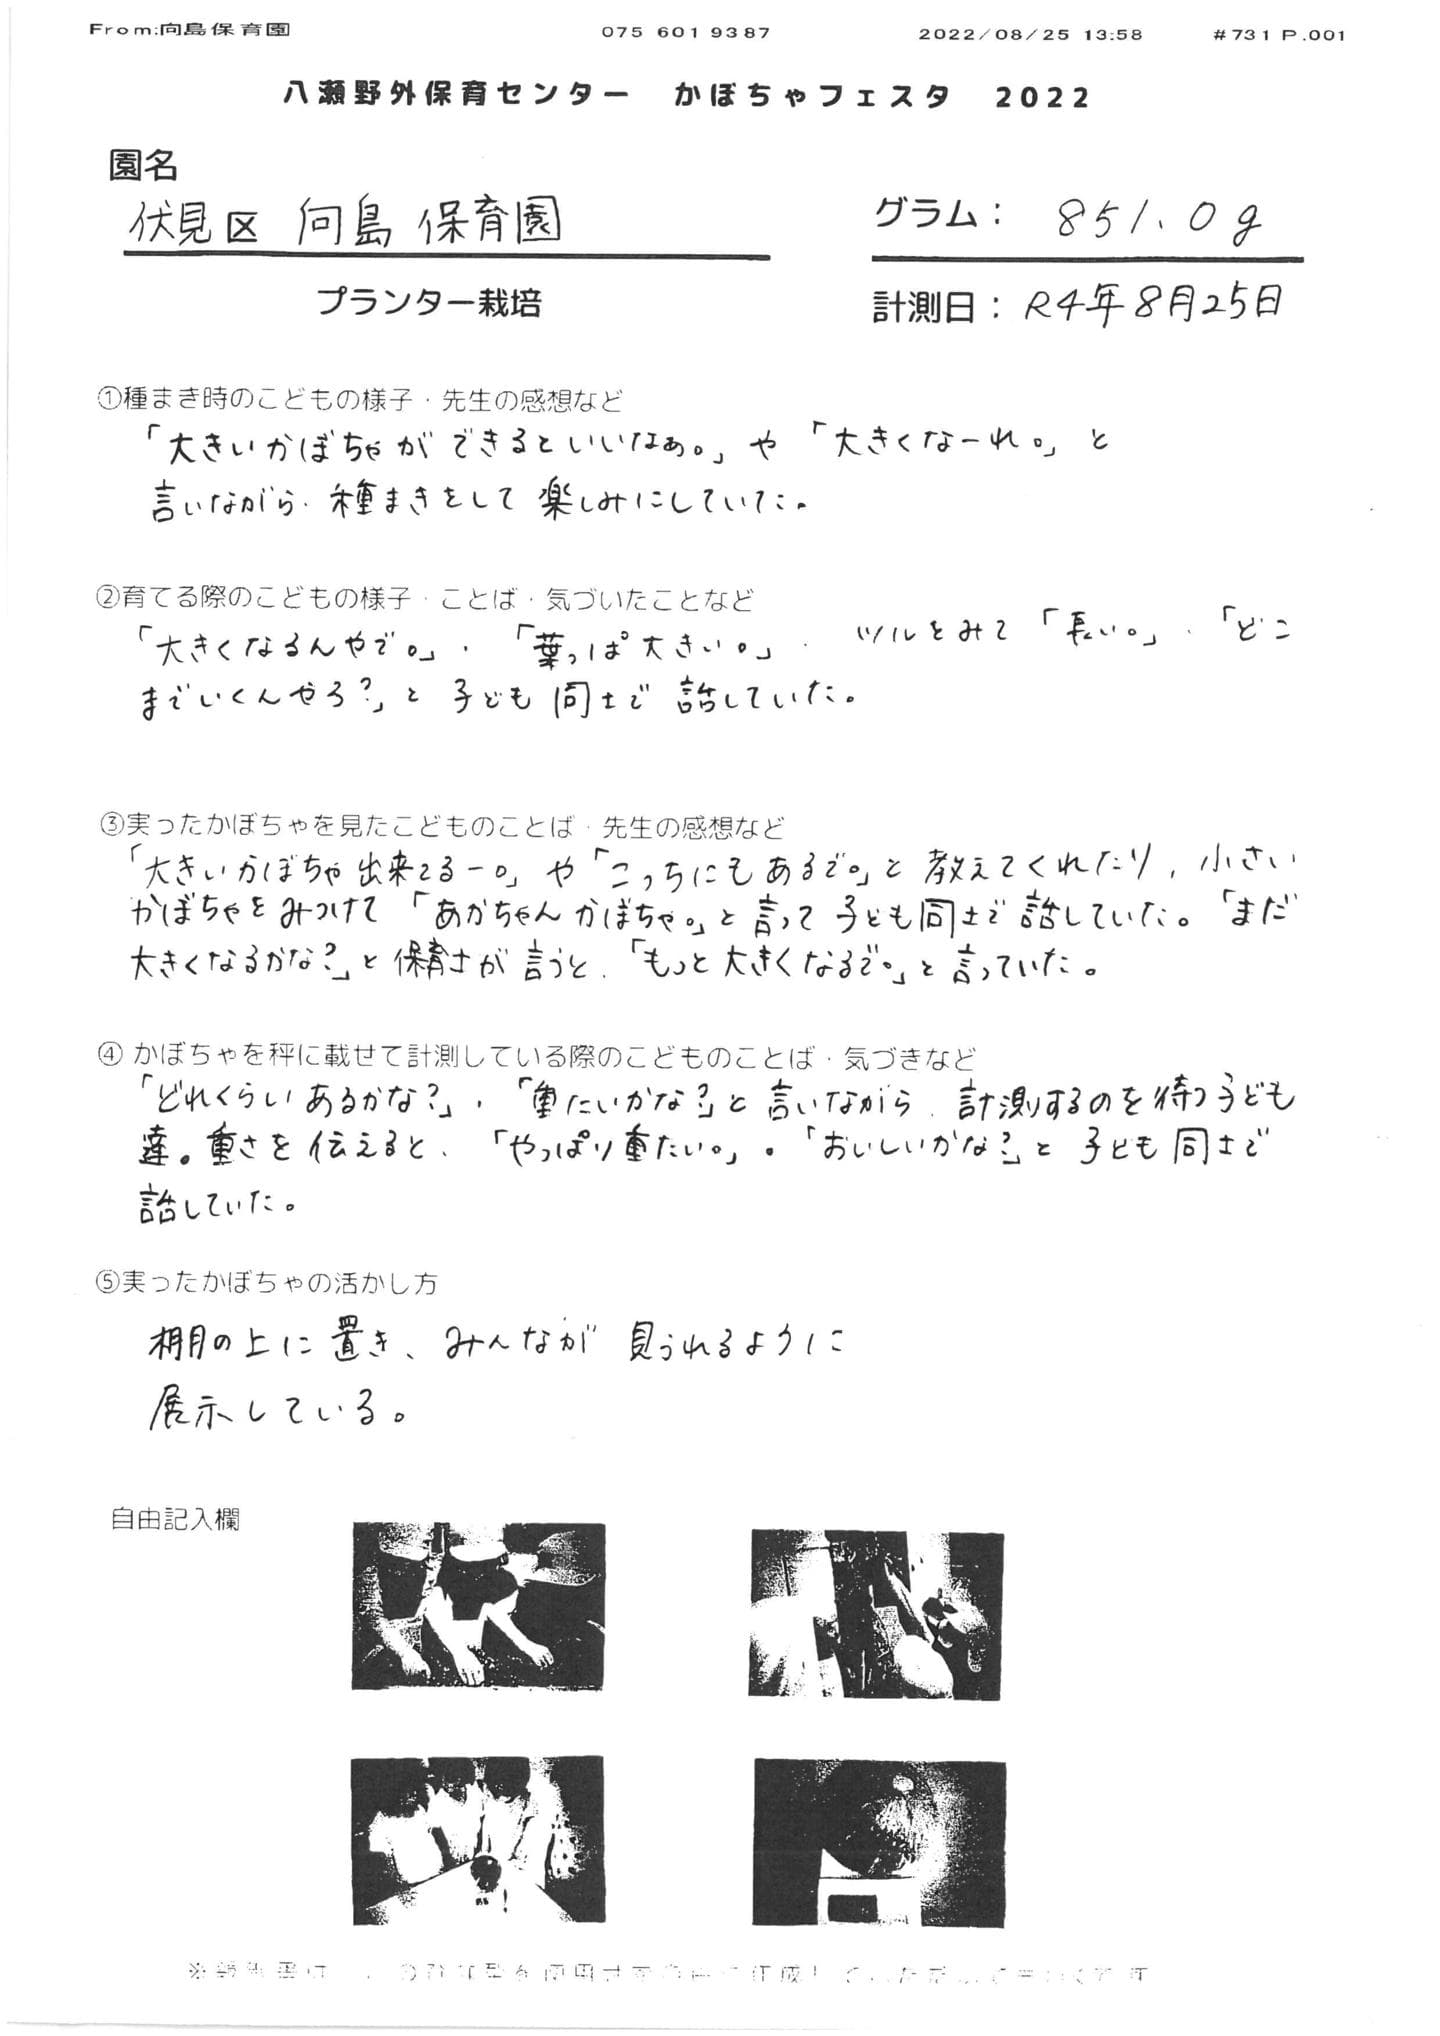 From:向島保育園 075 601 9387 2022/08/25 13:58 #731 P.001
八瀬野外保育センター かぼちゃフェスタ 2022
園名
伏見区 向島 保育園
グラム： 851.0g
プランター栽培
計測日： R4年8月25日
①種まき時のこどもの様子・先生の感想など
「大きいかぼちゃができるといいなぁ。」や「大きくなーれ。」と
言いながら、種まきをして楽しみにしていた。
②育てる際のこどもの様子・ことば・気づいたことなど
「大きくなるんやで。」、「葉っぱ大きい。」、ツルをみて「長い。」、「どこ
までいくんやろ？」と子ども同士で話していた。
③実ったかぼちゃを見たこどものことば・先生の感想など
「大きいかぼちゃ出来てるー。」や「こっちにもあるで。」と教えてくれたり、小さい
かぼちゃをみつけて「あかちゃんかぼちゃ。」と言って子ども同士で話していた。「まだ
大きくなるかな？」と保育士が言うと、「もっと大きくなるで。」と言っていた。
④ かぼちゃを秤に載せて計測している際のこどものことば・気づきなど
「どれくらいあるかな？」、「重たいかな？」と言いながら、計測するのを待つ子ども
達。重さを伝えると、「やっぱり重たい。」。「おいしいかな？」と子ども同士で
話していた。
⑤実ったかぼちゃの活かし方
棚の上に置き、みんなが見られるように
展示している。
自由記入欄